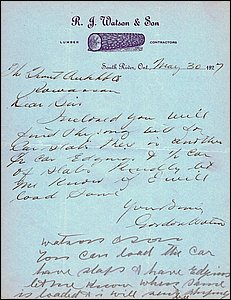 R. J. Watson & Son
LUMBER CONTRACTORS
South River, Ont. May 30 1927
The Grant
Dear Sir
Enclosed you will
find shipping bill for
Car slabs there is another
Car Edgings & ½ car
of slabs Kindly let
me know & I will
load same
Yours Truly
Gordon Watson
Watson & Son
You can load the car
have slabs & have Edgings
let me know when same
is loaded & will send shipping